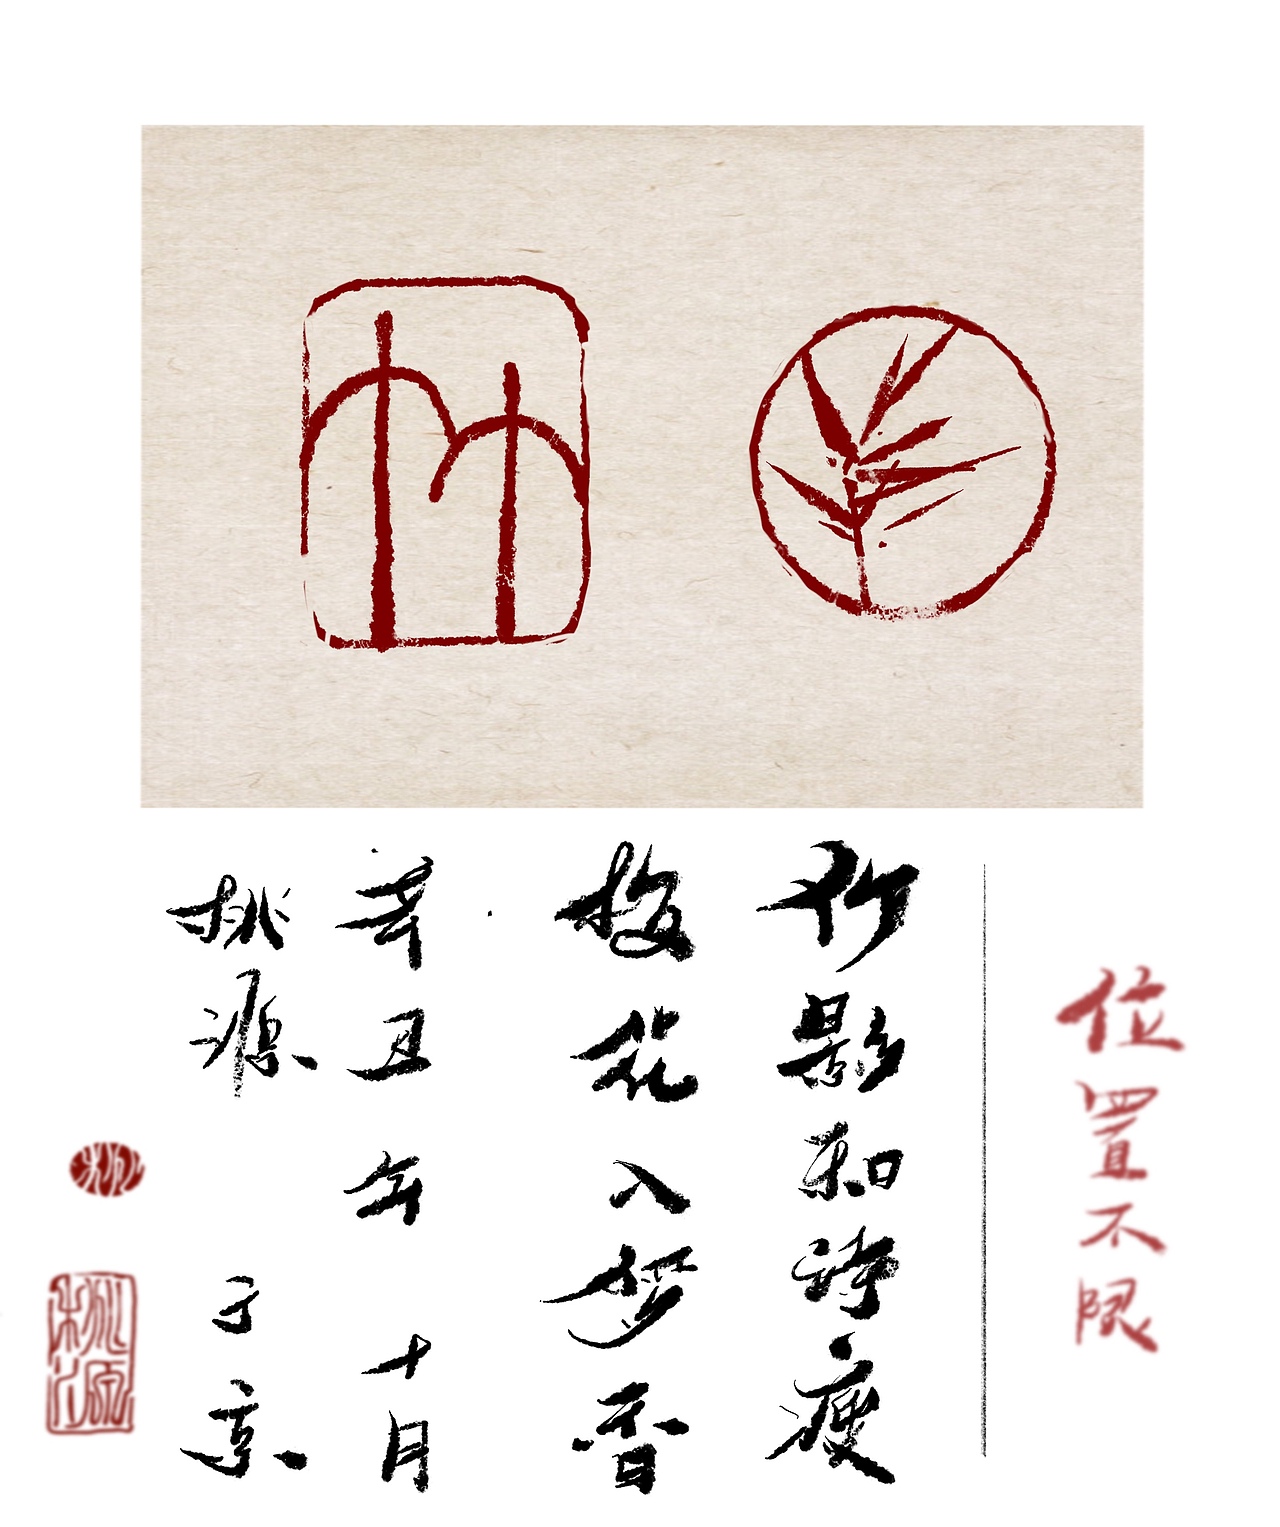 竹
位置不限
竹影和诗瘦
梅花入梦香
辛丑年 十月
桃源 于京
桃源